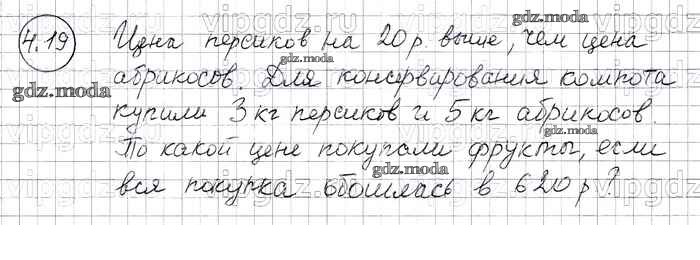 4.19 Цена персиков на 20 р. выше, чем цена
абрикосов. Для консервирования компота
купили 3 кг персиков и 5 кг абрикосов.
По какой цене покупали фрукты, если
вся покупка обошлась в 620 р?
gdz.moda
gdz.moda
gdz.moda
gdz.moda
gdz.moda
gdz.moda